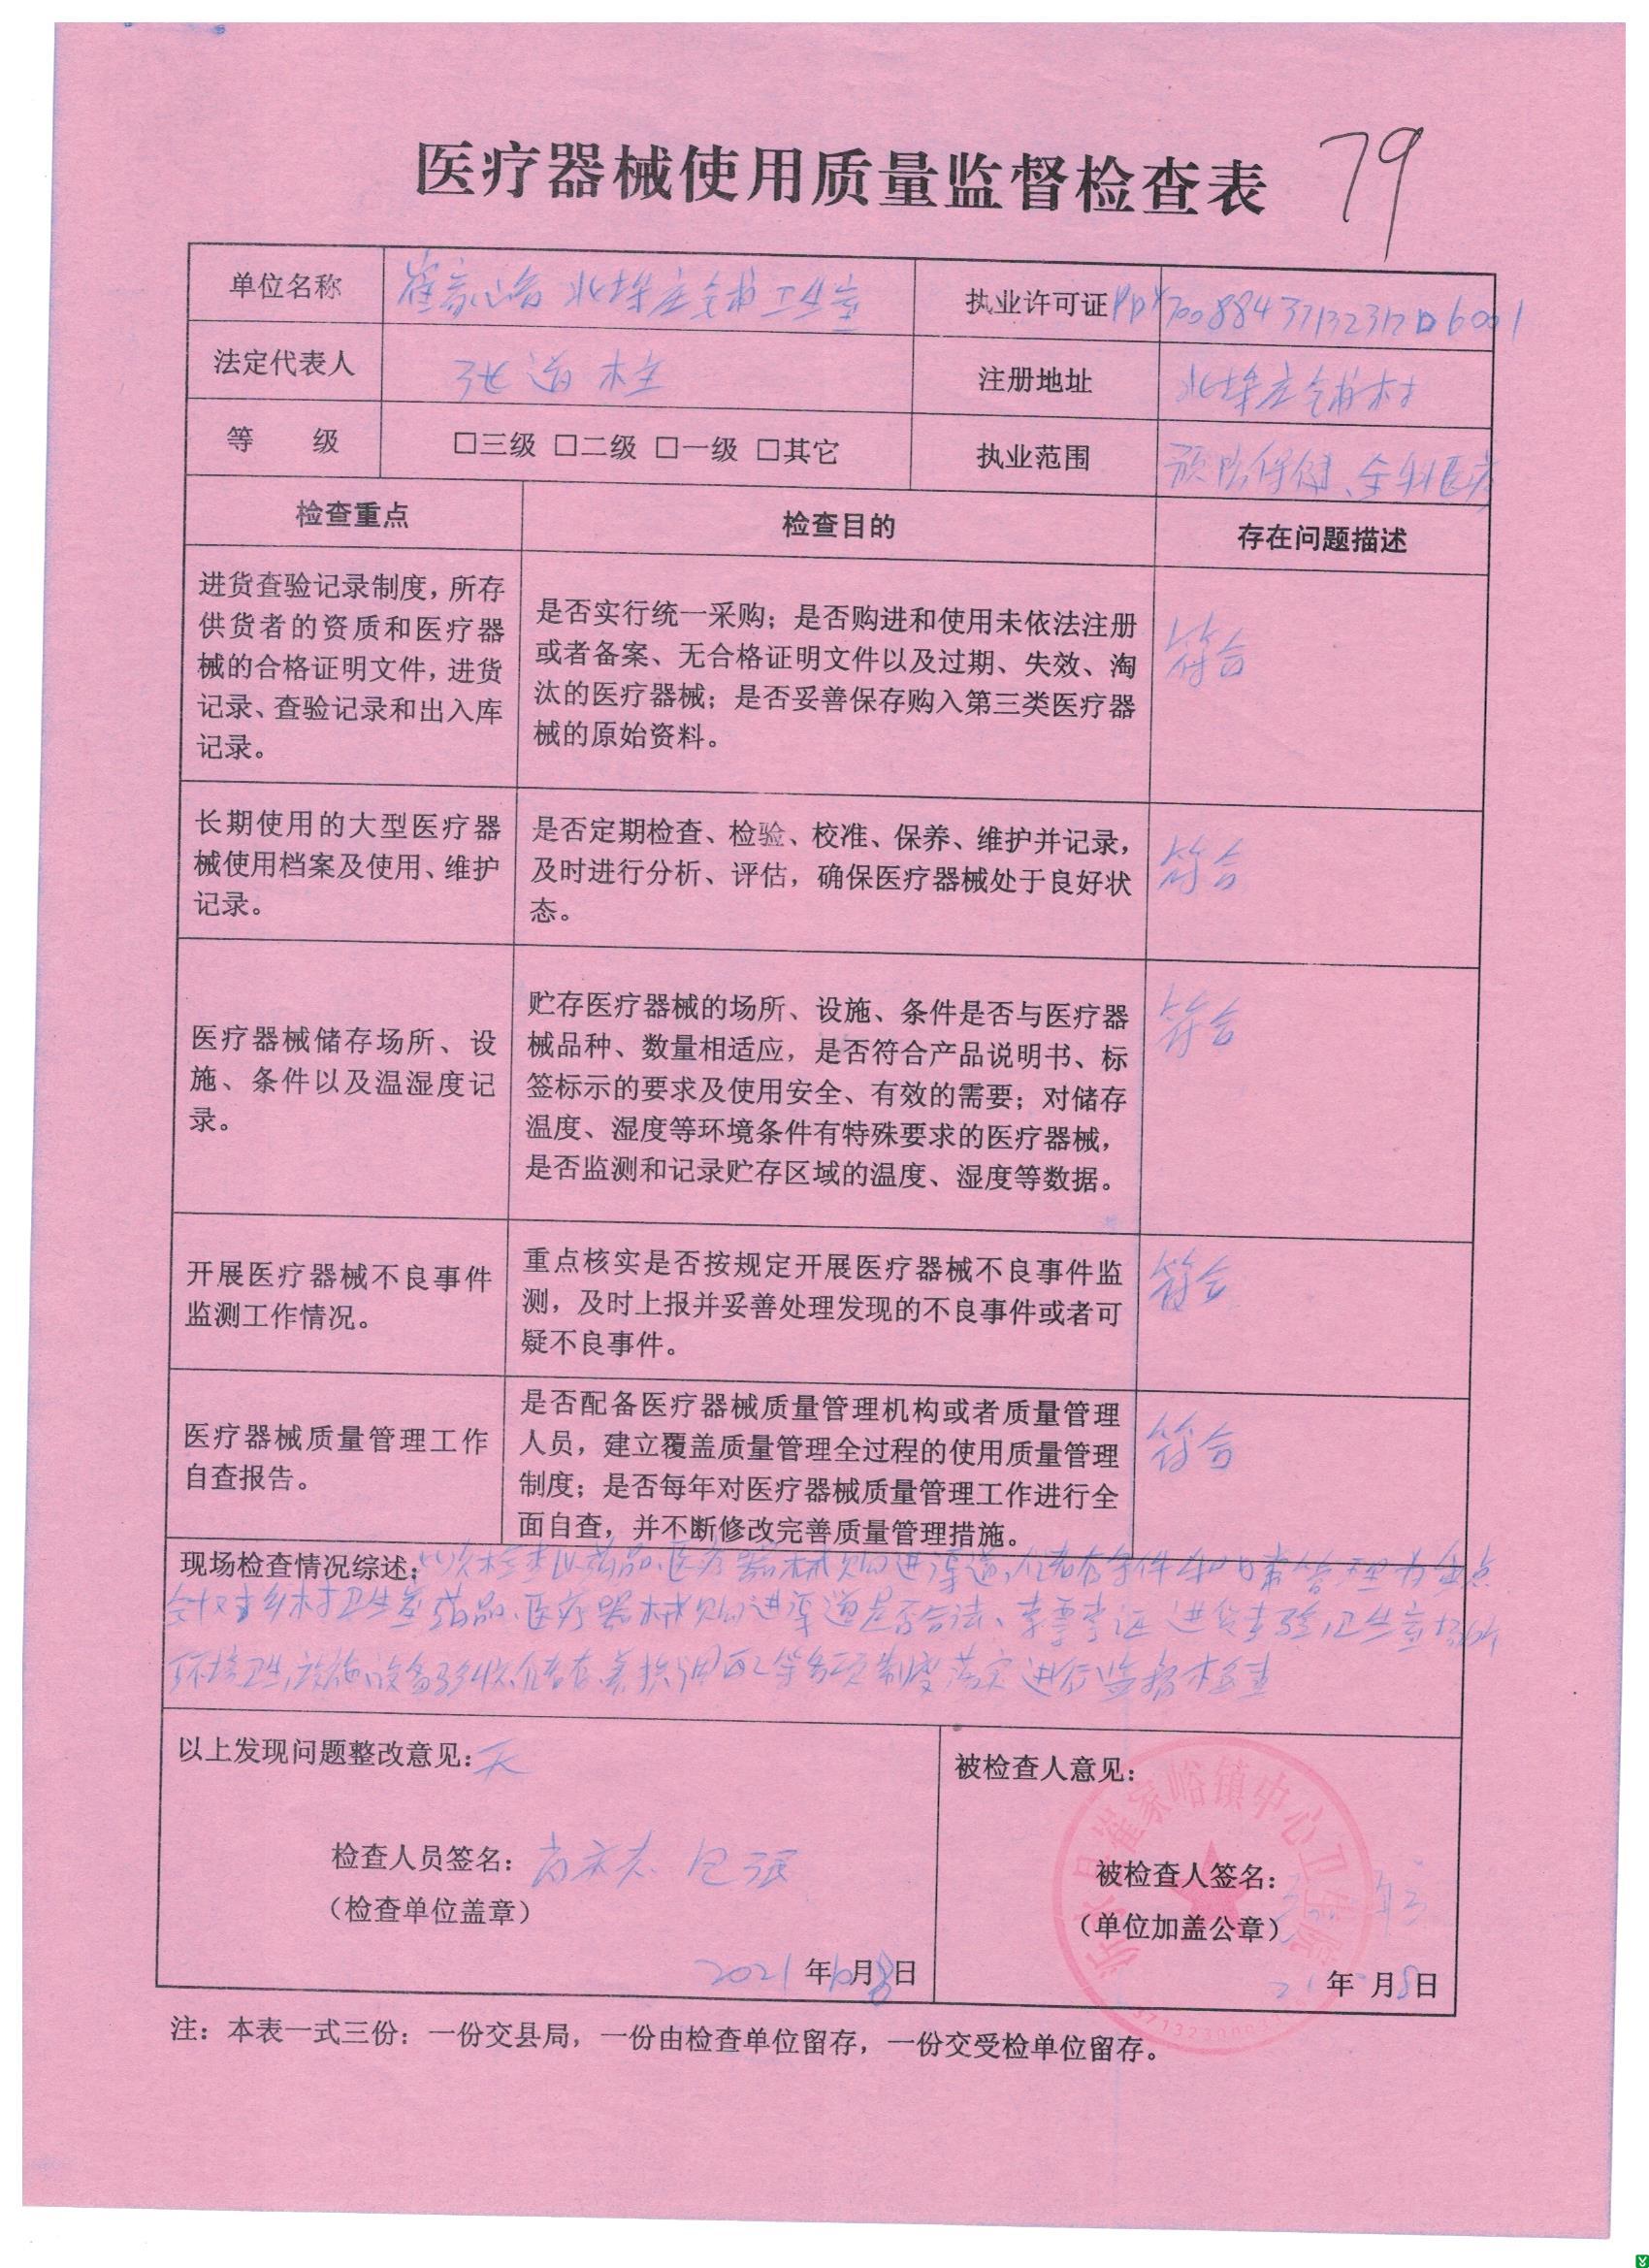 医疗器械使用质量监督检查表 79
单位名称 崔家峪北垛庄铺村卫生室 执业许可证
法定代表人 张道栓 注册地址 北垛庄铺村
等 级 □三级 □二级 □一级 □其它 执业范围 预防保健、全科医疗
检查重点 检查目的 存在问题描述
进货查验记录制度，所存
供货者的资质和医疗器
械的合格证明文件，进货
记录、查验记录和出入库
记录。
是否实行统一采购；是否购进和使用未依法注册
或者备案、无合格证明文件以及过期、失效、淘
汰的医疗器械；是否妥善保存购入第三类医疗器
械的原始资料。
符合
长期使用的大型医疗器
械使用档案及使用、维护
记录。
是否定期检查、检验、校准、保养、维护并记录，
及时进行分析、评估，确保医疗器械处于良好状
态。
符合
医疗器械储存场所、设
施、条件以及温湿度记
录。
贮存医疗器械的场所、设施、条件是否与医疗器
械品种、数量相适应，是否符合产品说明书、标
签标示的要求及使用安全、有效的需要；对储存
温度、湿度等环境条件有特殊要求的医疗器械，
是否监测和记录贮存区域的温度、湿度等数据。
符合
开展医疗器械不良事件
监测工作情况。
重点核实是否按规定开展医疗器械不良事件监
测，及时上报并妥善处理发现的不良事件或者可
疑不良事件。
符合
医疗器械质量管理工作
自查报告。
是否配备医疗器械质量管理机构或者质量管理
人员，建立覆盖质量管理全过程的使用质量管理
制度；是否每年对医疗器械质量管理工作进行全
面自查，并不断修改完善质量管理措施。
符合
现场检查情况综述：以次检查以药品、医疗器械购进渠道、储存条件和日常管理为重点
针对乡村卫生室药品、医疗器械购进渠道是否合法、索票索证 进货查验 卫生室场所
环境卫生、设施设备 验收、储存、养护、调配等各项制度落实进行监督检查
以上发现问题整改意见：无
检查人员签名： 包强
（检查单位盖章）
2021年10月8日
被检查人意见：
被检查人签名：
（单位加盖公章）
年 月8日
崔家峪镇中心卫生院
注：本表一式三份：一份交县局，一份由检查单位留存，一份交受检单位留存。